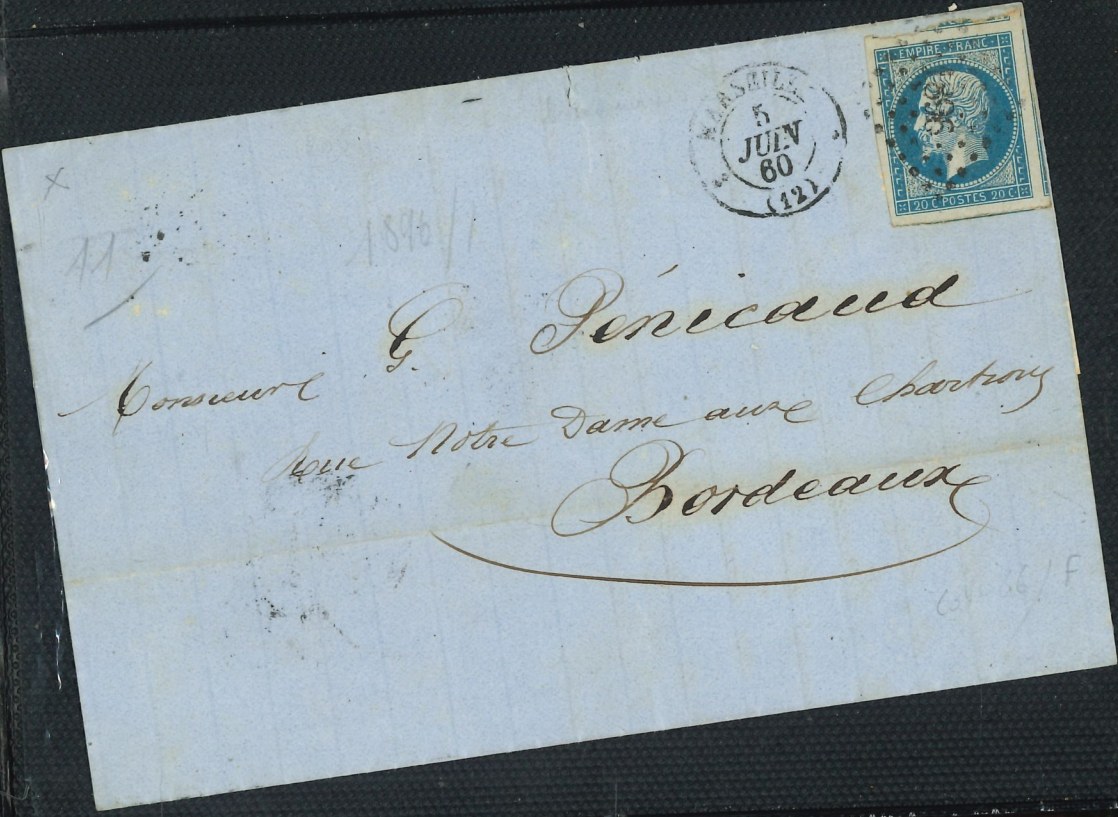 EMPIRE FRANC
20 C POSTES 20 C
MARSEILLE
5
JUIN
60
(12)
x
11
1896/1
G. Pénicaud
Monsieur
Rue Notre Dame aux Chartrons
Bordeaux